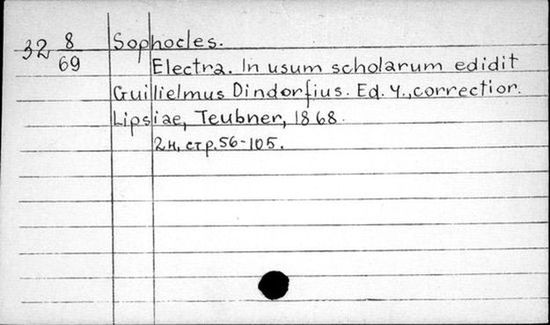 32 8/69 Sophocles.
Electra. In usum scholarum edidit
Guilielmus Dindorfius. Ed. 4., correctior.
Lipsiae, Teubner, 1868.
2н, стр. 56-105.